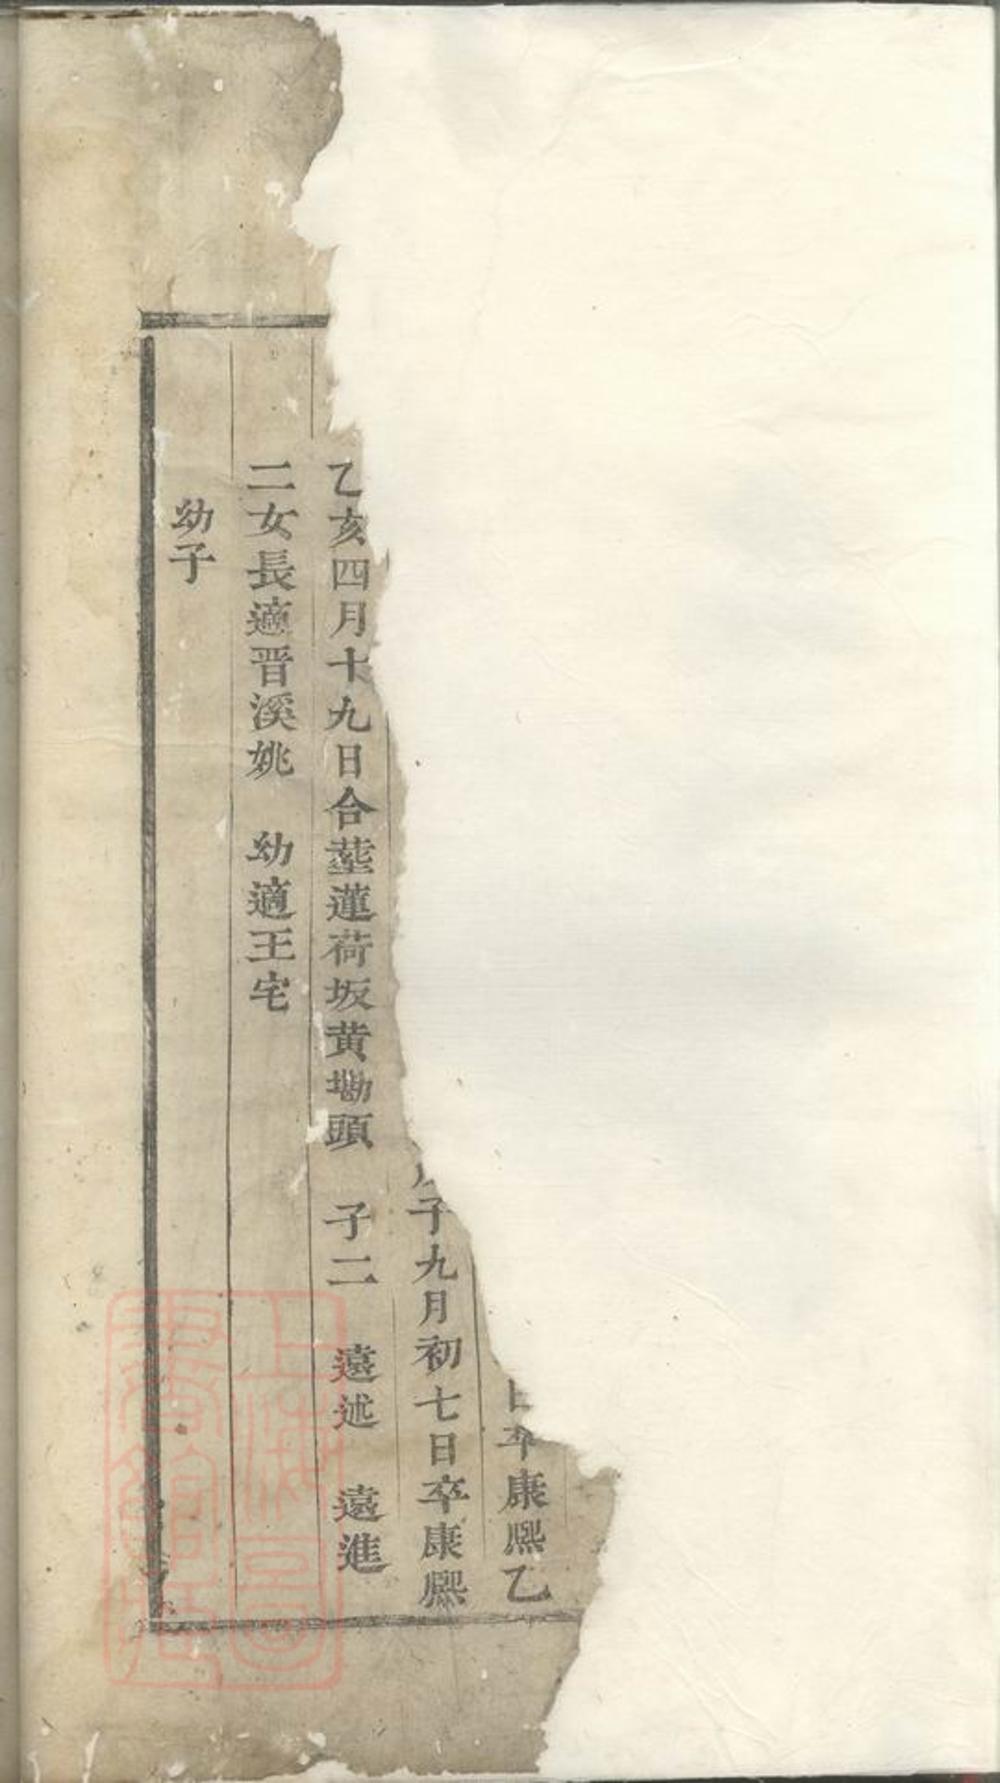 卒康熙乙
子九月初七日卒康熙
乙亥四月十九日合塟蓮荷坂黄塸頭　子二　遠述　遠進
二女長適晋溪姚　幼適王宅
幼子
上海圖書館藏